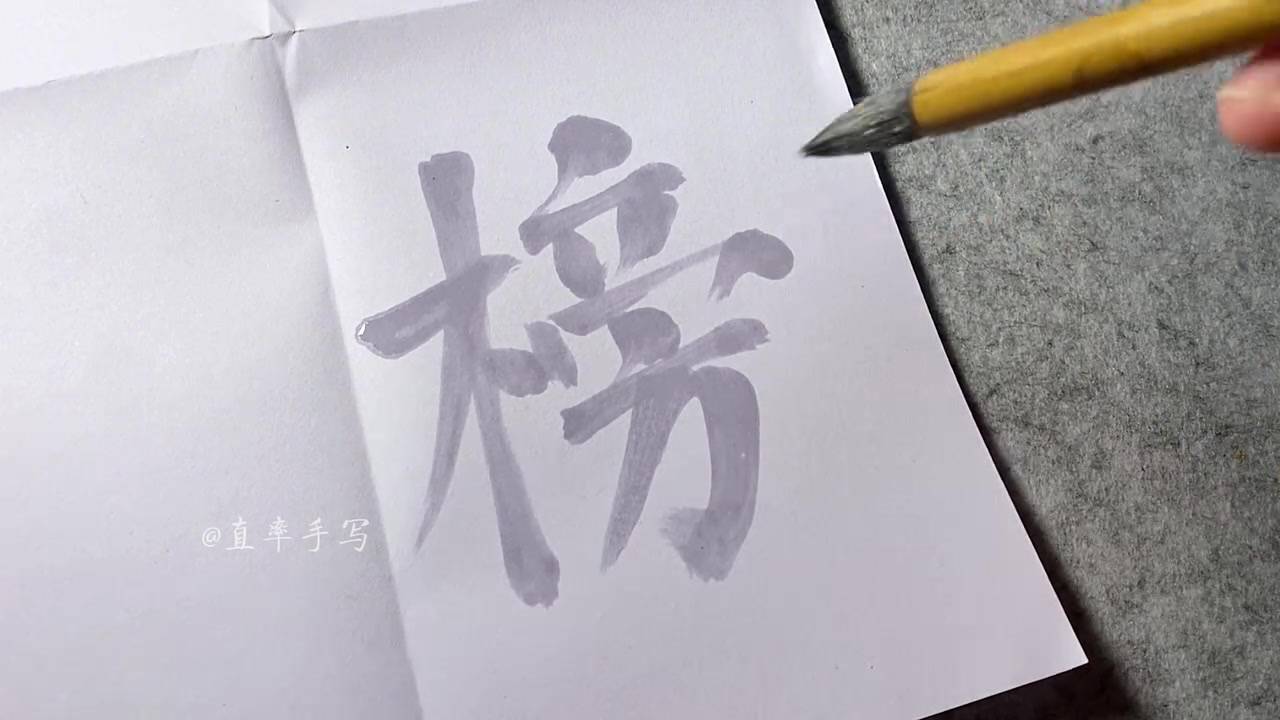 榜
@直率手写